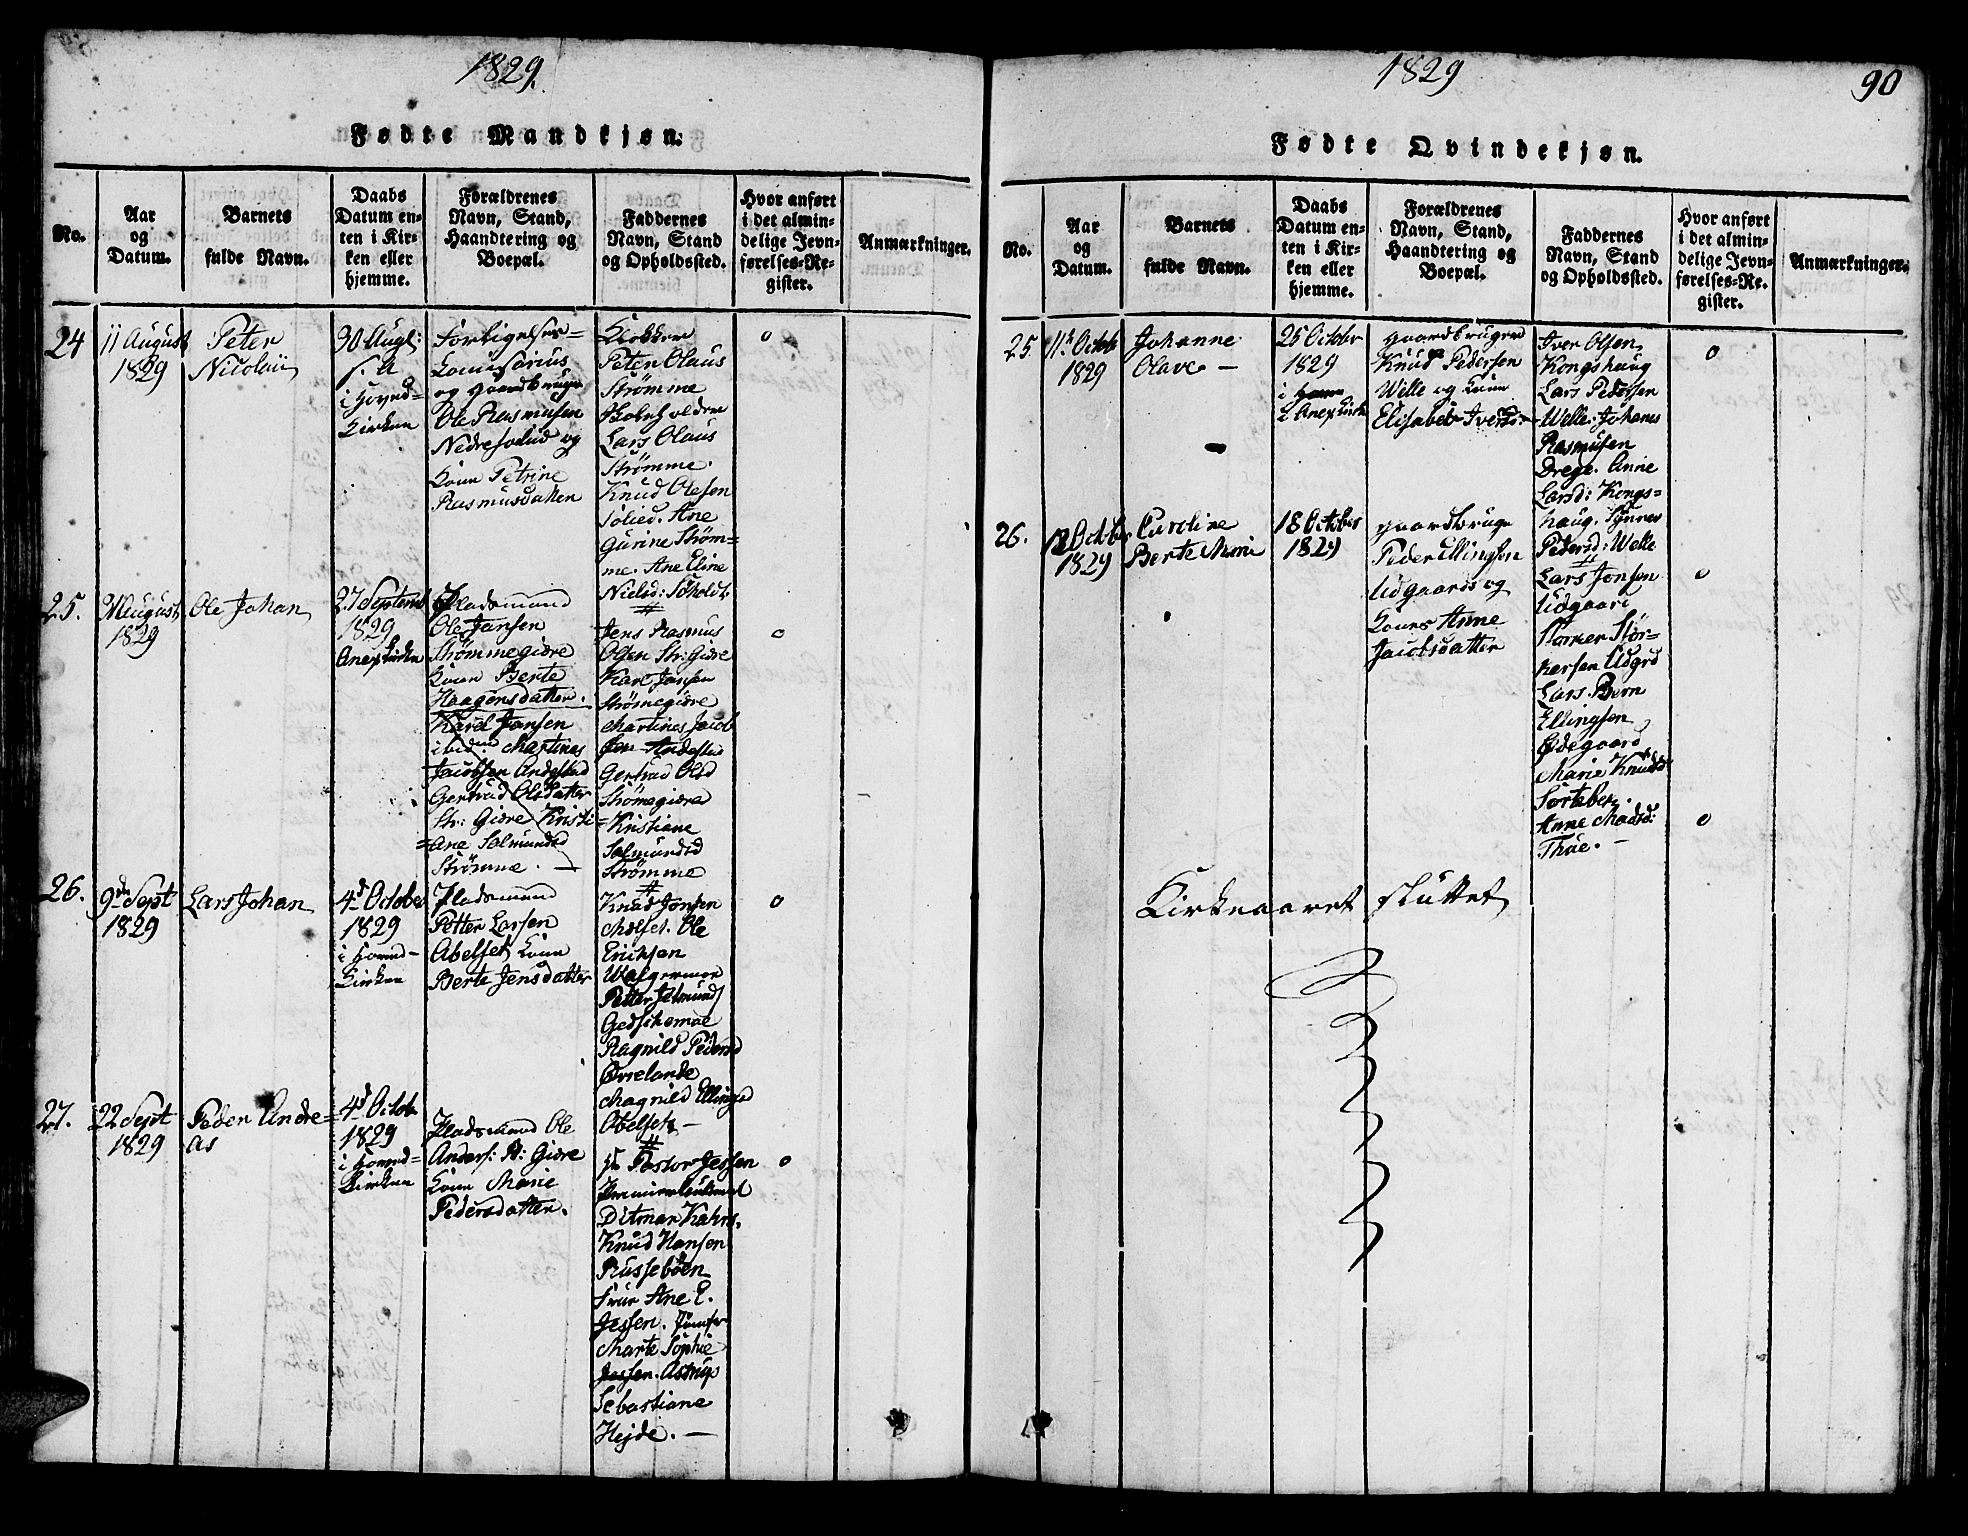 1829.
Fødte Mandkjøn.
No.
Aar
og
Datum.
Barnets
fulde Navn.
Daabs
Datum en-
ten i Kir-
ken eller
hjemme.
Forældrenes
Navn, Stand,
Haandtering og
Boepæl.
Faddernes
Navn, Stand
og Opholdssted.
Hvor anført
i det almin-
delige Jevn-
førelses-Re-
gister.
Anmærkninger.
24
11 August
1829
Peter
Nicolai
30 Augt:
s. A
i Hoved-
Kirken
Forligelses-
Comisarius
og gaardbruger
Ole Rasmusen
og
Kone Petrine
Rasmusdatter
Klokker
Peter Olaus
Strømme
Lars Olaus
Strømme.
Knud Olesen
Solied. Ane
Gurine Strøm=
me. Ane Eline
Nielsd: Søholdt
o
25.
August
1829
Ole Johan
27 Septemb
1829
Anex Kirke
Pladsmand
Ole Jansen
Strømmegiære
Kone Berte
Haagensdatter.
Karel Jansen
ibid: Martines
Jacobsen Andestad
Gertrud Olsdatter
Str: Giære Kristi=
=Ane Salmundsd
Strømme. —
Jens Rasmus
Olsen Str: Giære
Karl Jansen
Strømegiære
Martines Jacob
sen Andestad
Gertrud Olsd
Strømegiære
Kristiane
Salmundsd
Strømme
o
26.
9de Sept
1829
Lars Johan
4d October
1829
i Hoved-
Kirken
Pladsmand
Petter Larsen
Abelset Kone
Berte Jensdatter
Knud Jonsen
Molset. Ole
Erichsen
Walgermoe
Petter
Ragnild Pedersd
Magnild Ellingsd
Abelset —
o
27.
22 Sept
1829
Peder Andre=
as
4d Octob
1829
i Hoved=
Kirken
Pladsmand Ole
Anders: St: Giære
Kone Marie
Pedersdatter.
Hr Pastor Jessen
Premierleutenant
Ditmar Kahrs.
Knud Hansen
Russebøen
Frue Ane E.
Jessen. Jomfr
Marte Sophie
Jessen. Astrup
Sebastiane
Hejde. —
o
1829
90
Fødte Qvindekjøn.
No.
Aar
og
Datum.
Barnets
fulde Navn.
Daabs
Datum en-
ten i Kir-
ken eller
hjemme.
Forældrenes
Navn, Stand,
Haandtering og
Boepæl.
Faddernes
Navn, Stand
og Opholdssted.
Hvor anført
i det almin-
delige Jevn-
førelses-Re-
gister.
Anmærkninger.
25.
11te Octob
1829
Johanne
Olave —
25 October
1829
i
i Anex Kirke
gaardbruger
Knud Pedersen
Welle og Kone
Elisabet Iversd:
Iver Olsen
Kongshaug
Lars Pedersen
Welle: Johanes
Rasmusen
Drege. Anne
Larsd: Kongs=
haug. Synnev
Pedersd: Welle
o
26.
12 October
1829
Caroline
Berte Marie
18 October
1829
gaardbruger
Peder Ellingsen
Udgaard og
Kones Anne
Jacobsdatter
Lars Jonsen
Udgaard
Lars Bern
Ellingsen
Ødegaard
Marie Knudsd
Sorteber.
Anne Madsd:
Thue. —
o
o
Kirkeaaret sluttet